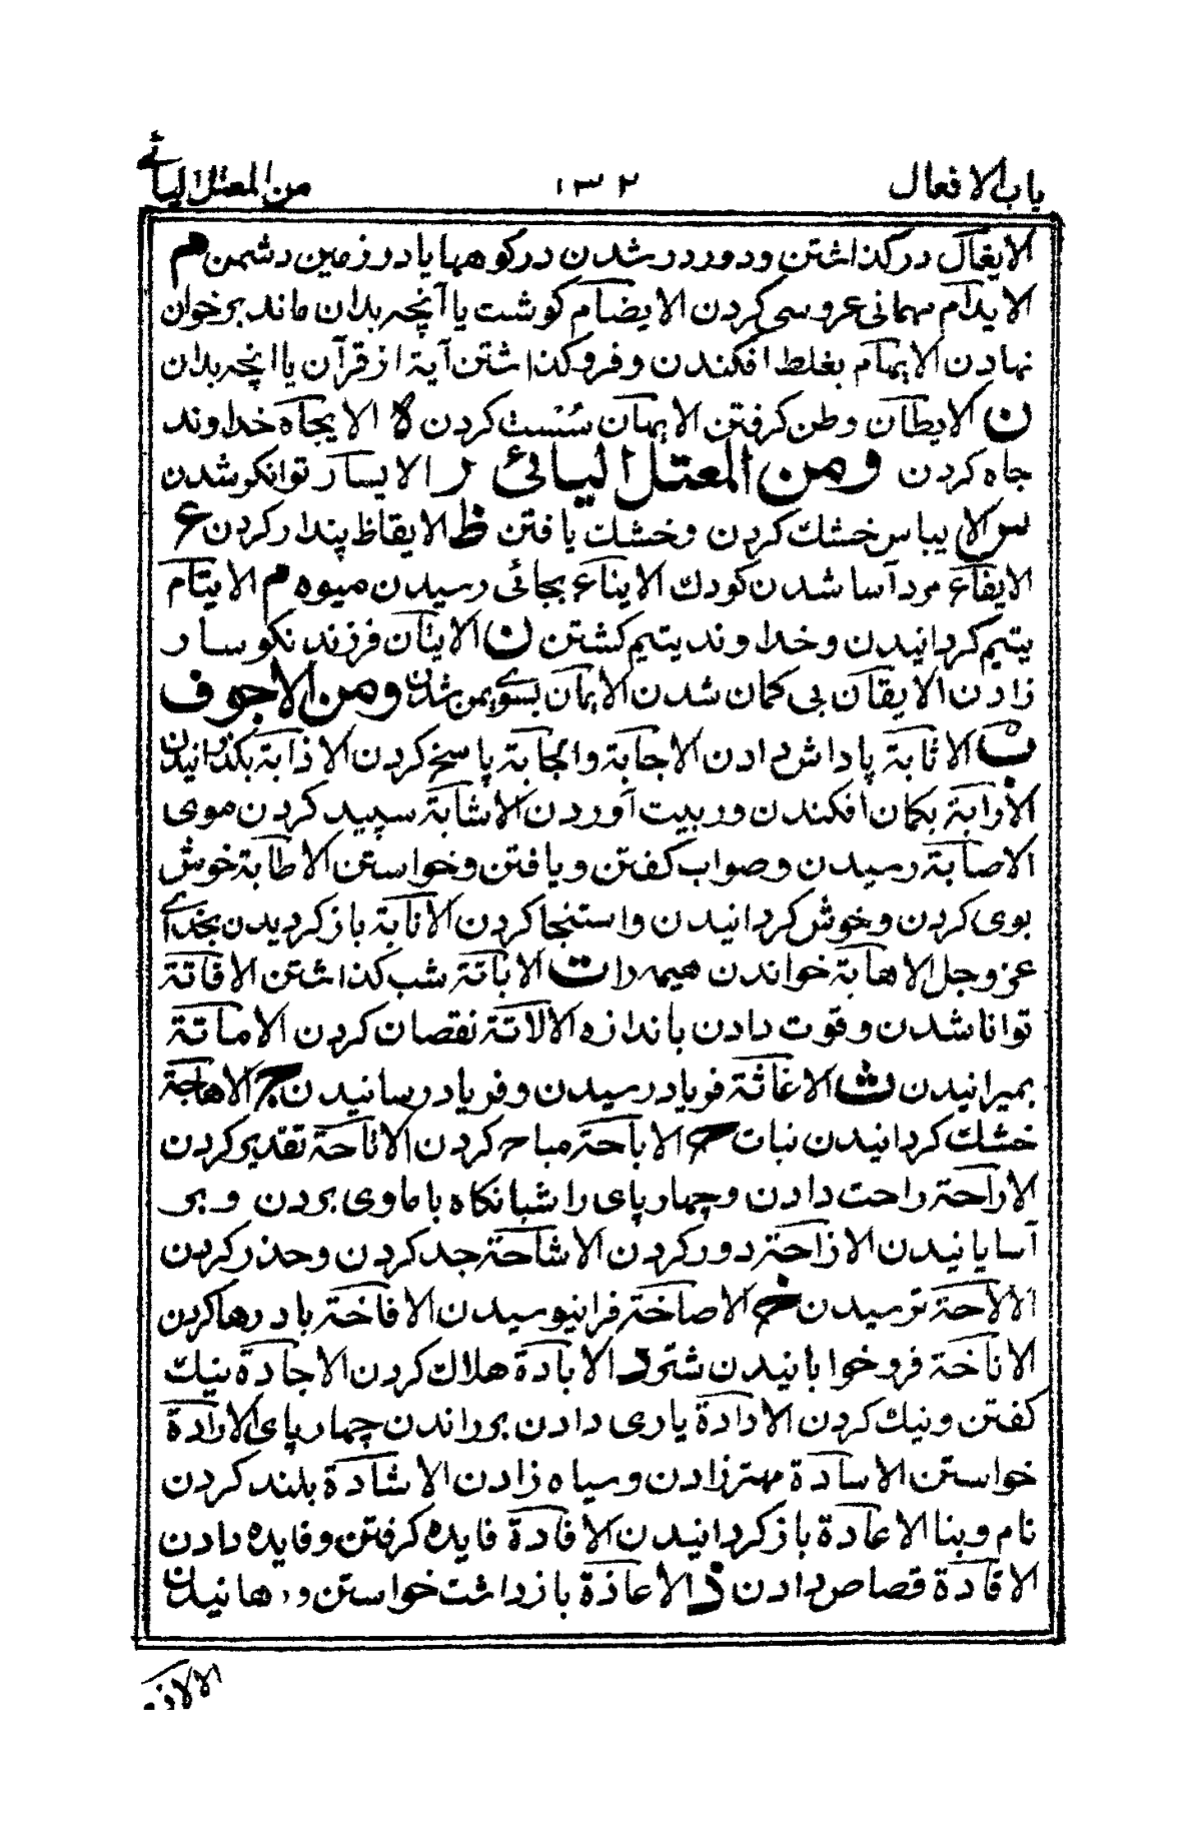 باب الافعال ۱۳۲ من المعتل اليائے
الايغال در گذاشتن و دور در شدن در كوهها يا در زمين دشمن م
الايلام مهمانی عروسی كردن الايضام گوشت يا آنچه بدان ماند بر خوان
نهادن الايهام بغلط افكندن و فرو گذاشتن آية از قرآن يا انچه بدان
ن الايطان وطن گرفتن الايهان سُست كردن ه الايجاه خداوند
جاه كردن ومن المعتل اليائی ر الايسار توانگر شدن
س الايباس خشك كردن و خشك يافتن ظ الايقاظ بيدار كردن ع
الايفاع مرد آسا شدن كودك الايناع بجائی رسيدن ميوه م الايتام
يتيم گردانيدن و خداوند يتيم گشتن ن الايتان فرزند نگوسار
زادن الايقان بی گمان شدن الايمان بسوے يمن شدن ومن الاجوف
ب الاثابة پاداش دادن الاجابة والجابة پاسخ كردن الاذابة بگذرانيدن
الارابة بگمان افكندن و ريبت آوردن الاشابة سپيد كردن موی
الاصابة رسيدن و صواب گفتن و يافتن و خواستن الاطابة خوش
بوی كردن و خوش گردانيدن و استنجا كردن الانابة باز گرديدن بخداے
عز وجل الاهابة خواندن هيمه را ت الاباتة شب گذاشتن الاقاتة
توانا شدن و قوت دادن باندازه الالاتة نقصان كردن الاماتة
بميرانيدن ث الاغاثة فرياد رسيدن و فرياد رسانيدن ج الاهاجة
خشك گردانيدن نبات ح الاباحة مباح كردن الاتاحة تقدير كردن
الاراحة راحت دادن و چهار پای را شبانگاه با ماوی بردن و بر
آسايانيدن الازاحة دور كردن الاشاحة جد كردن و حذر كردن
الالاحة ترسيدن خ الاصاخة فرا نيوسيدن الافاخة باد رها كردن
الاناخة فرو خوابانيدن شتر د الابادة هلاك كردن الاجادة نيك
گفتن و نيك كردن الارادة ياری دادن بر راندن چهار پای الارادة
خواستن الاسادة مهتر زادن و سياه زادن الاشادة بلند كردن
نام و بنا الاعادة باز گردانيدن الافادة فايده گرفتن و فايده دادن
الاقادة قصاص دادن ذ الاعاذة بازداشت خواستن و رهانيدن